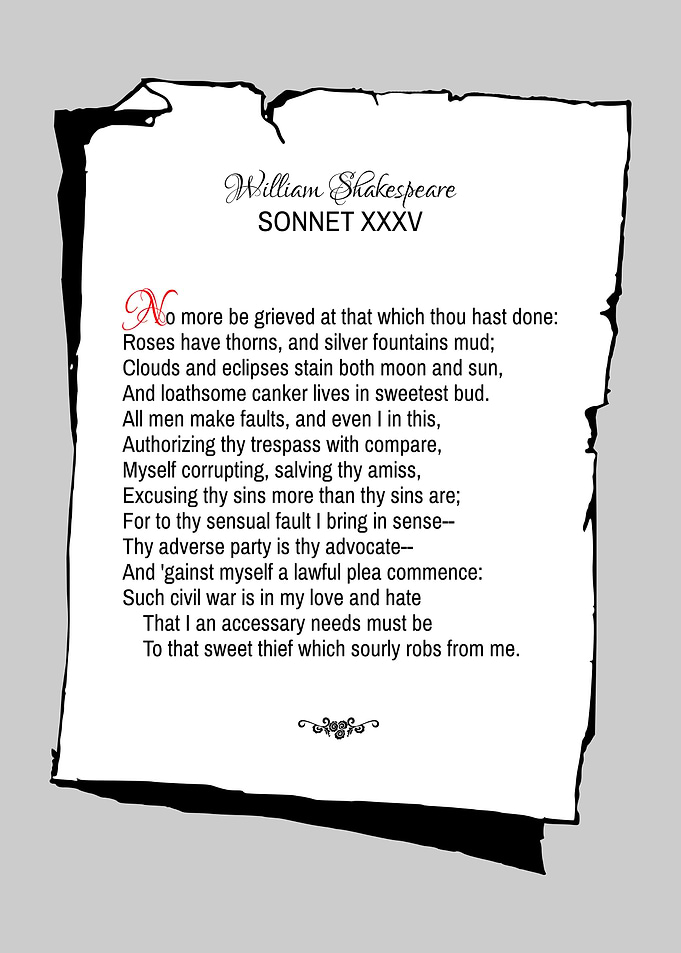 William Shakespeare
SONNET XXXV
No more be grieved at that which thou hast done:
Roses have thorns, and silver fountains mud;
Clouds and eclipses stain both moon and sun,
And loathsome canker lives in sweetest bud.
All men make faults, and even I in this,
Authorizing thy trespass with compare,
Myself corrupting, salving thy amiss,
Excusing thy sins more than thy sins are;
For to thy sensual fault I bring in sense--
Thy adverse party is thy advocate--
And 'gainst myself a lawful plea commence:
Such civil war is in my love and hate
That I an accessary needs must be
To that sweet thief which sourly robs from me.